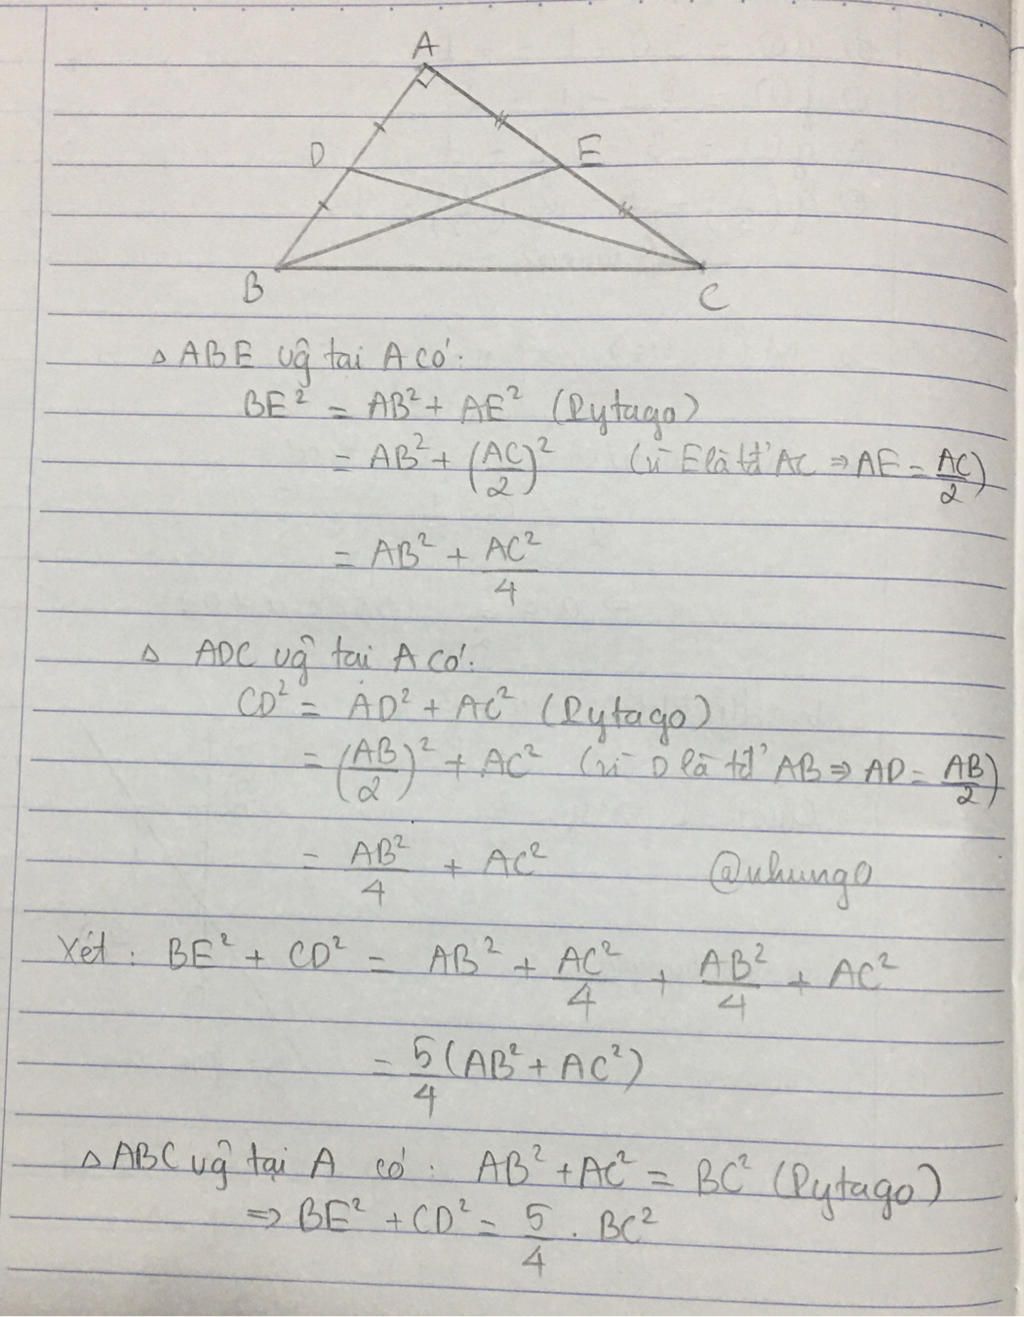 A
D
E
B
C
△ ABE vg̃ tại A có:
BE² = AB² + AE² (Pytago)
= AB² + (AC/2)² (vì E là tđ' AC ⇒ AE = AC/2)
= AB² + AC²/4
△ ADC vg̃ tại A có:
CD² = AD² + AC² (Pytago)
= (AB/2)² + AC² (vì D là tđ' AB ⇒ AD = AB/2)
= AB²/4 + AC²
@nhung0
Xét : BE² + CD² = AB² + AC²/4 + AB²/4 + AC²
= 5/4 (AB² + AC²)
△ ABC vg̃ tại A có : AB² + AC² = BC² (Pytago)
⇒ BE² + CD² = 5/4 . BC²